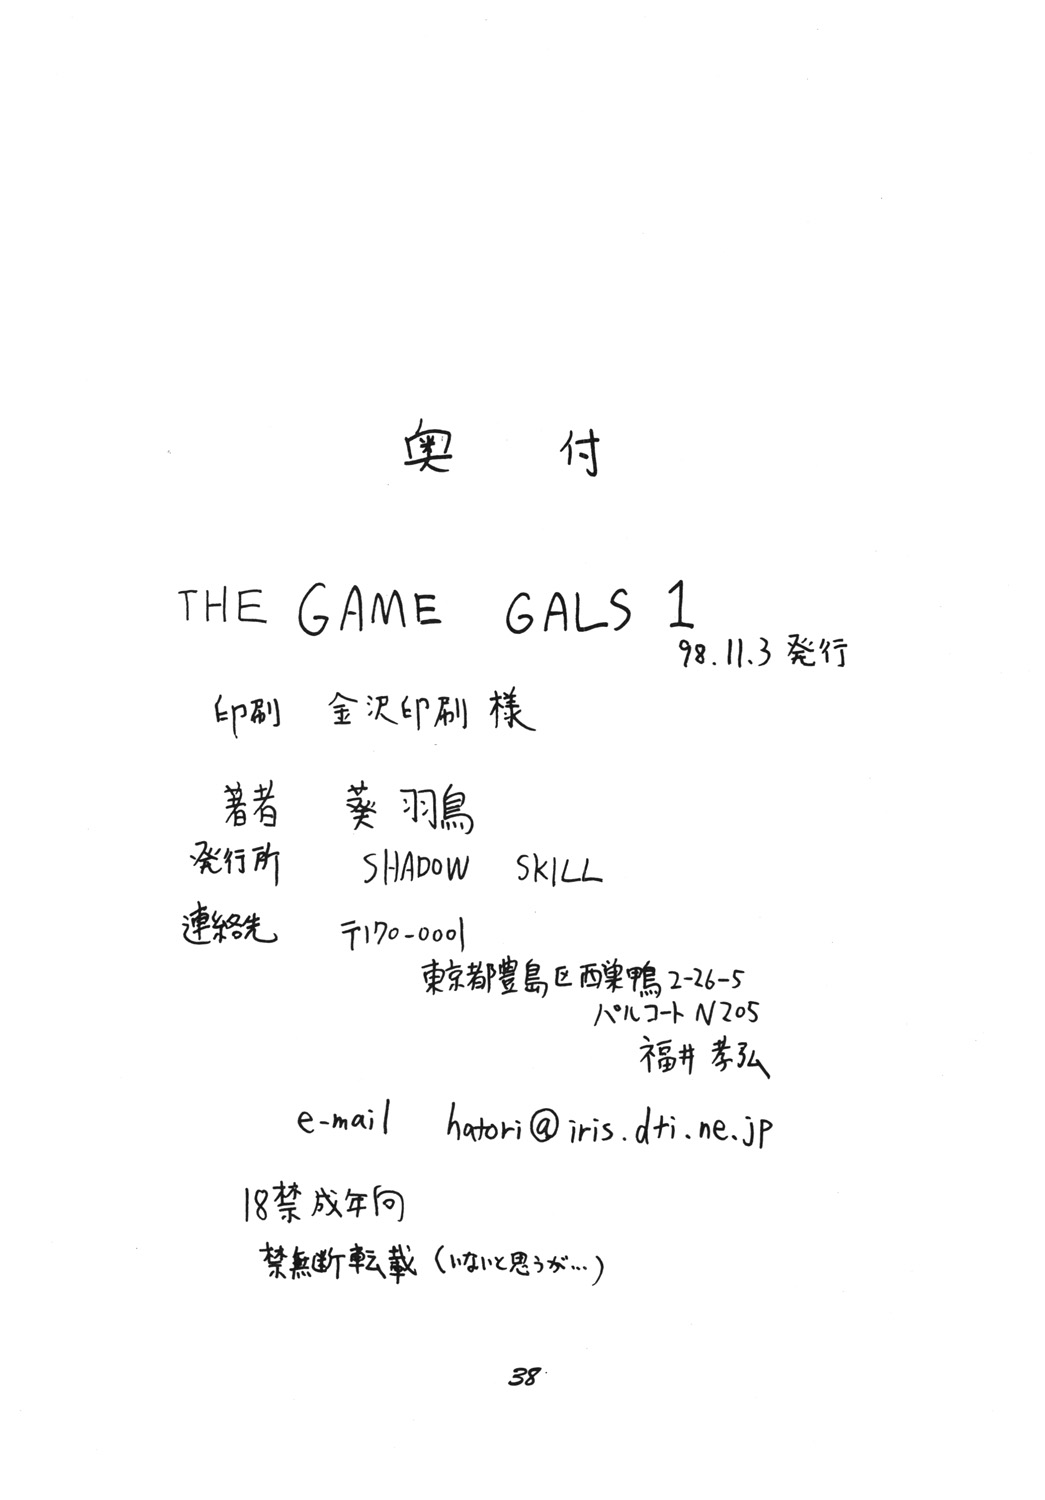 奥付
THE GAME GALS 1
98.11.3 発行
印刷 金沢印刷 様
著者 葵 羽鳥
発行所 SHADOW SKILL
連絡先 〒170-0001
東京都豊島区西巣鴨2-26-5
パルコート N205
福井 孝弘
e-mail hatori@iris.dti.ne.jp
18禁成年向
禁無断転載(いないと思うが…)
38